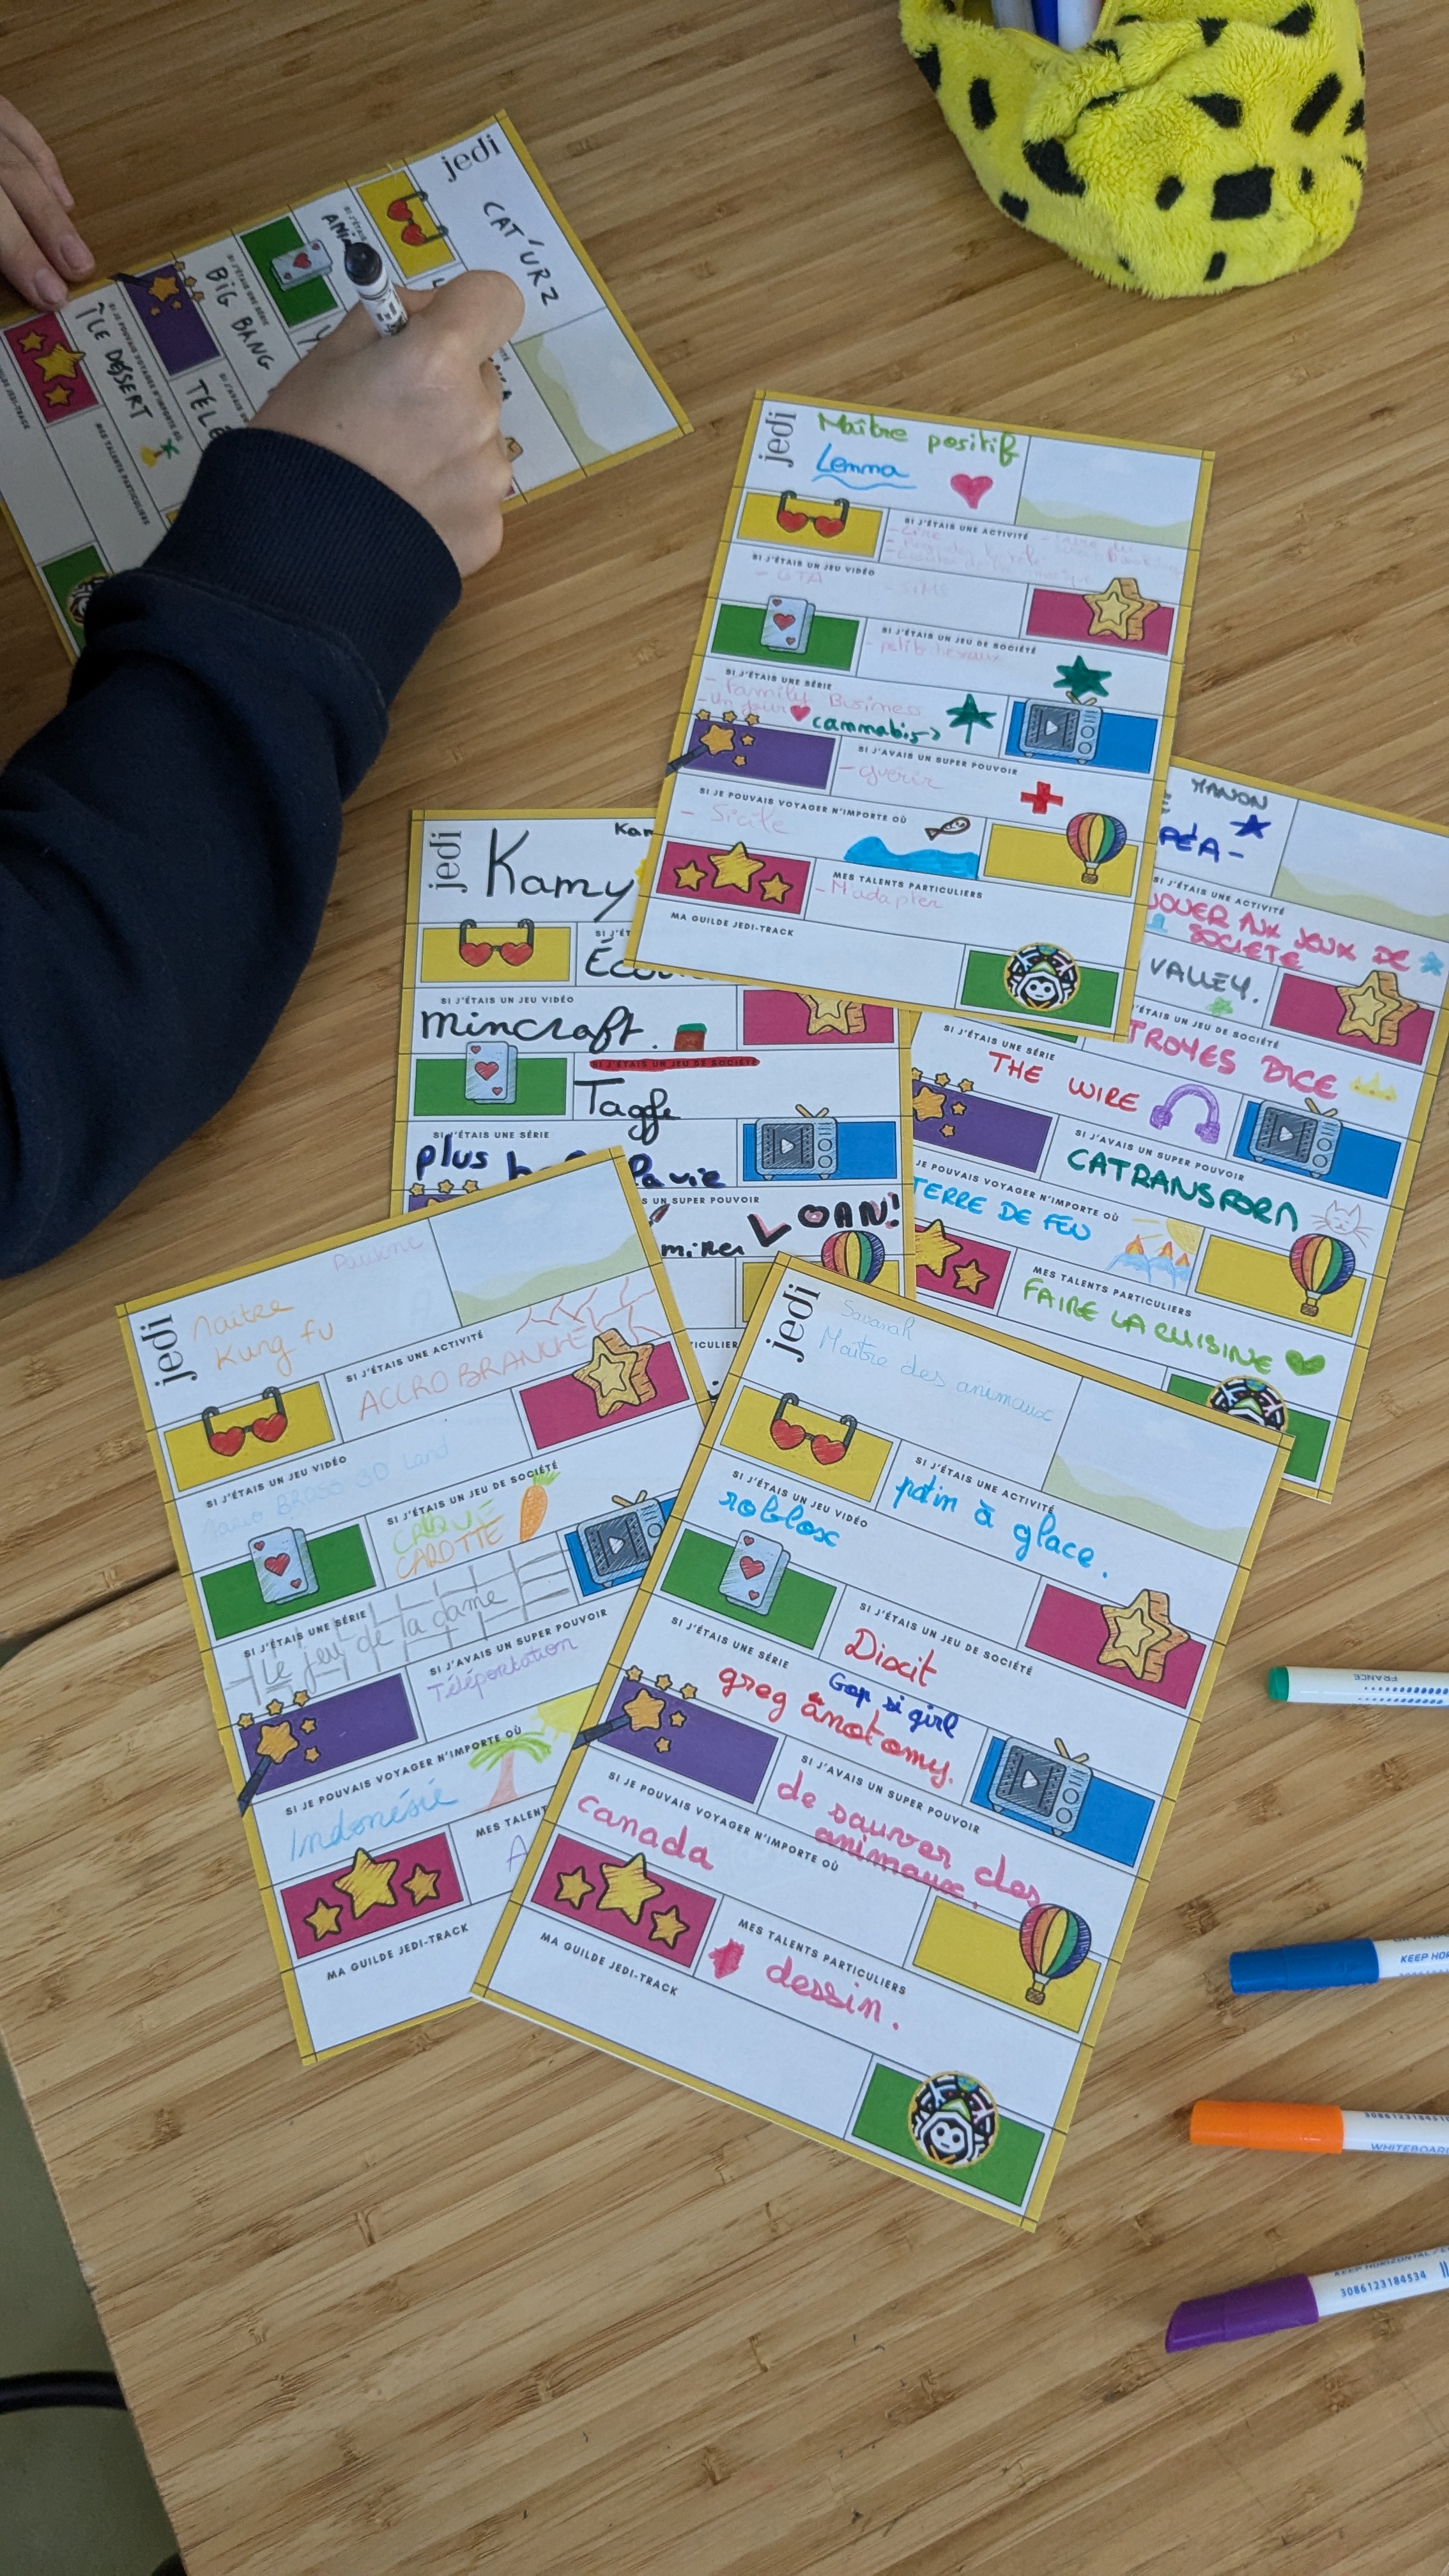 jedi
CAT'URZ
SI J'ÉTAIS UNE SÉRIE
BIG BANG
SI JE POUVAIS VOYAGER N'IMPORTE OÙ
ÎLE DESSERT
MES TALENTS PARTICULIERS
jedi
Maître positif
Lemma
SI J'ÉTAIS UNE ACTIVITÉ
SI J'ÉTAIS UN JEU VIDÉO
- GTA
- SIMS
SI J'ÉTAIS UN JEU DE SOCIÉTÉ
SI J'ÉTAIS UNE SÉRIE
- Family Business
- Un jour
cannabis->
SI J'AVAIS UN SUPER POUVOIR
- guérir
SI JE POUVAIS VOYAGER N'IMPORTE OÙ
- Sicile
MES TALENTS PARTICULIERS
- M'adapter
MA GUILDE JEDI-TRACK
jedi
Kamy
SI J'ÉTAIS UN JEU VIDÉO
mincraft.
SI J'ÉTAIS UN JEU DE SOCIÉTÉ
Tagge
SI J'ÉTAIS UNE SÉRIE
plus
la vie
UN SUPER POUVOIR
LOAN!
MANON
SI J'ÉTAIS UNE ACTIVITÉ
JOUER AUX JEUX DE
SOCIETE
VALLEY.
J'ÉTAIS UN JEU DE SOCIÉTÉ
TROYES DICE
SI J'ÉTAIS UNE SÉRIE
THE WIRE
SI J'AVAIS UN SUPER POUVOIR
CATRANSFORM
JE POUVAIS VOYAGER N'IMPORTE OÙ
TERRE DE FEU
MES TALENTS PARTICULIERS
FAIRE LA CUISINE
jedi
Pauline
Maitre
Kung fu
SI J'ÉTAIS UNE ACTIVITÉ
ACCROBRANCHE
SI J'ÉTAIS UN JEU VIDÉO
Mario BROSS 3D Land
SI J'ÉTAIS UN JEU DE SOCIÉTÉ
CROQUE
CAROTTE
SI J'ÉTAIS UNE SÉRIE
Le jeu de la dame
SI J'AVAIS UN SUPER POUVOIR
Téléportation
SI JE POUVAIS VOYAGER N'IMPORTE OÙ
Indonésie
MES TALENT
MA GUILDE JEDI-TRACK
jedi
Savanah
Maître des animaux
SI J'ÉTAIS UNE ACTIVITÉ
patin à glace.
SI J'ÉTAIS UN JEU VIDÉO
roblox
SI J'ÉTAIS UN JEU DE SOCIÉTÉ
Dixit
SI J'ÉTAIS UNE SÉRIE
Gop si girl
greg anotomy.
SI J'AVAIS UN SUPER POUVOIR
de sauver des
animaux.
SI JE POUVAIS VOYAGER N'IMPORTE OÙ
canada
MES TALENTS PARTICULIERS
dessin.
MA GUILDE JEDI-TRACK
FRANCE
KEEP HOR
WHITEBOARD
3086123184534